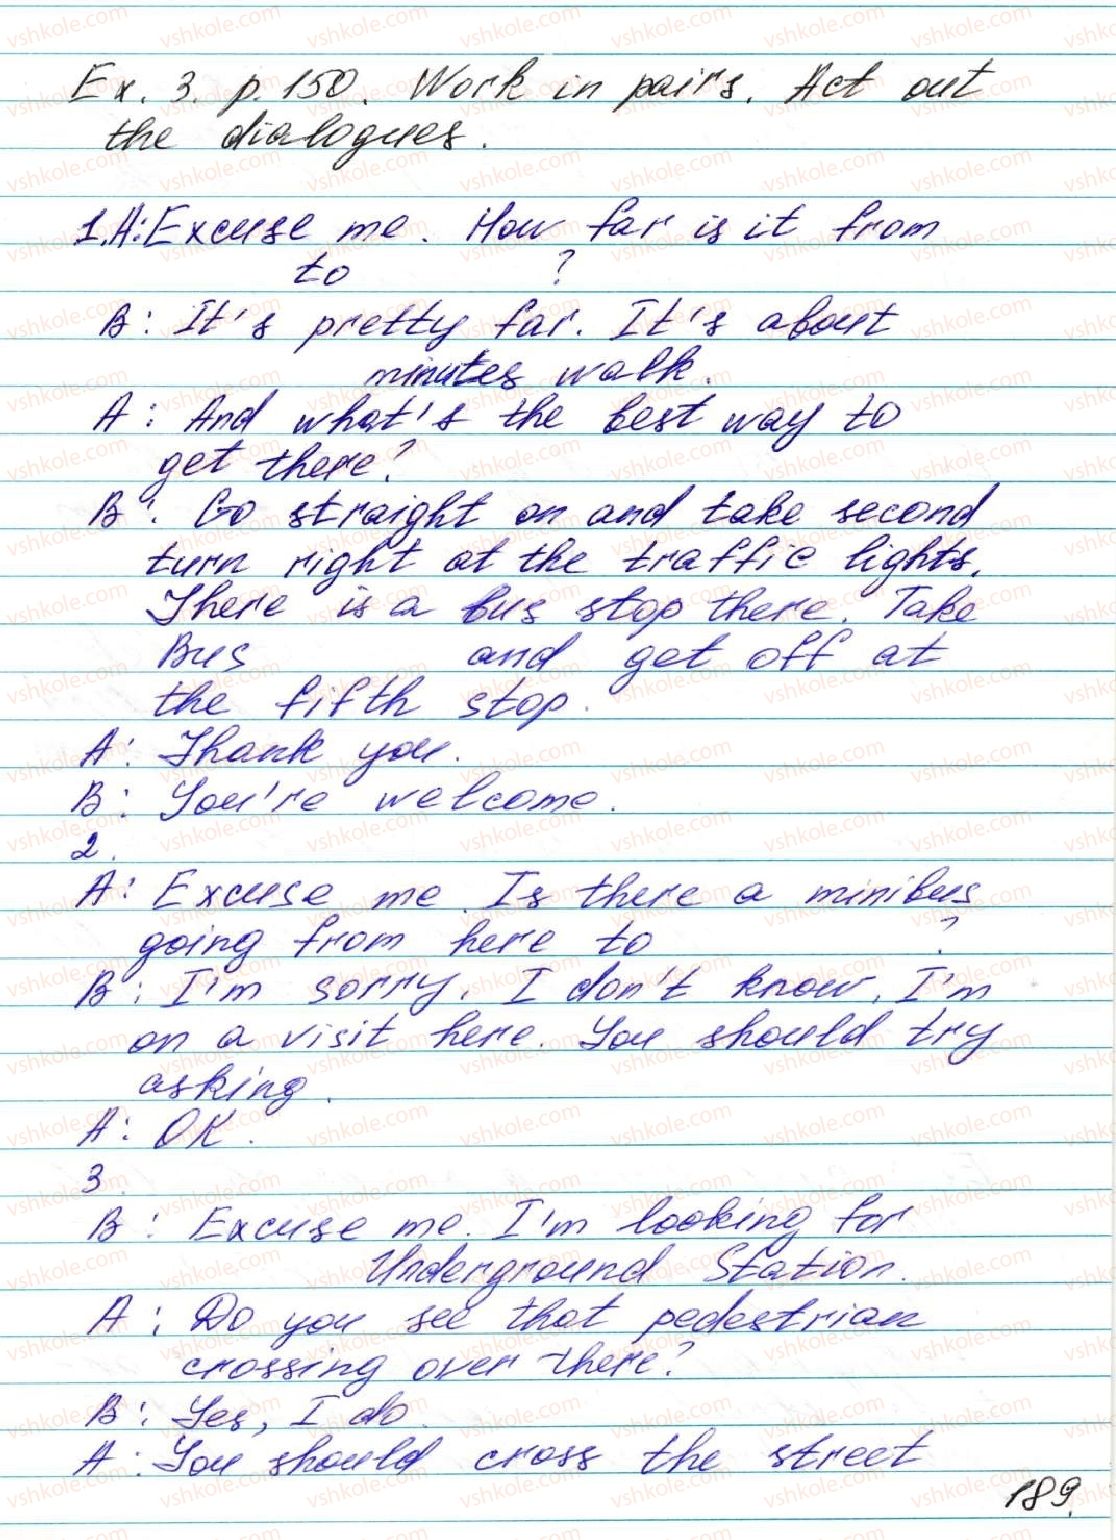 Ex. 3. p. 150. Work in pairs. Act out
the dialogues.
1.A: Excuse me. How far is it from
to ?
B: It's pretty far. It's about
minutes walk.
A: And what's the best way to
get there?
B: Go straight on and take second
turn right at the traffic lights.
There is a bus stop there. Take
Bus and get off at
the fifth stop.
A: Thank you.
B: You're welcome.
2.
A: Excuse me. Is there a minibus
going from here to ?
B: I'm sorry. I don't know. I'm
on a visit here. You should try
asking.
A: OK.
3.
B: Excuse me. I'm looking for
Underground Station.
A: Do you see that pedestrian
crossing over there?
B: Yes, I do.
A: You should cross the street
189.
vshkole.com